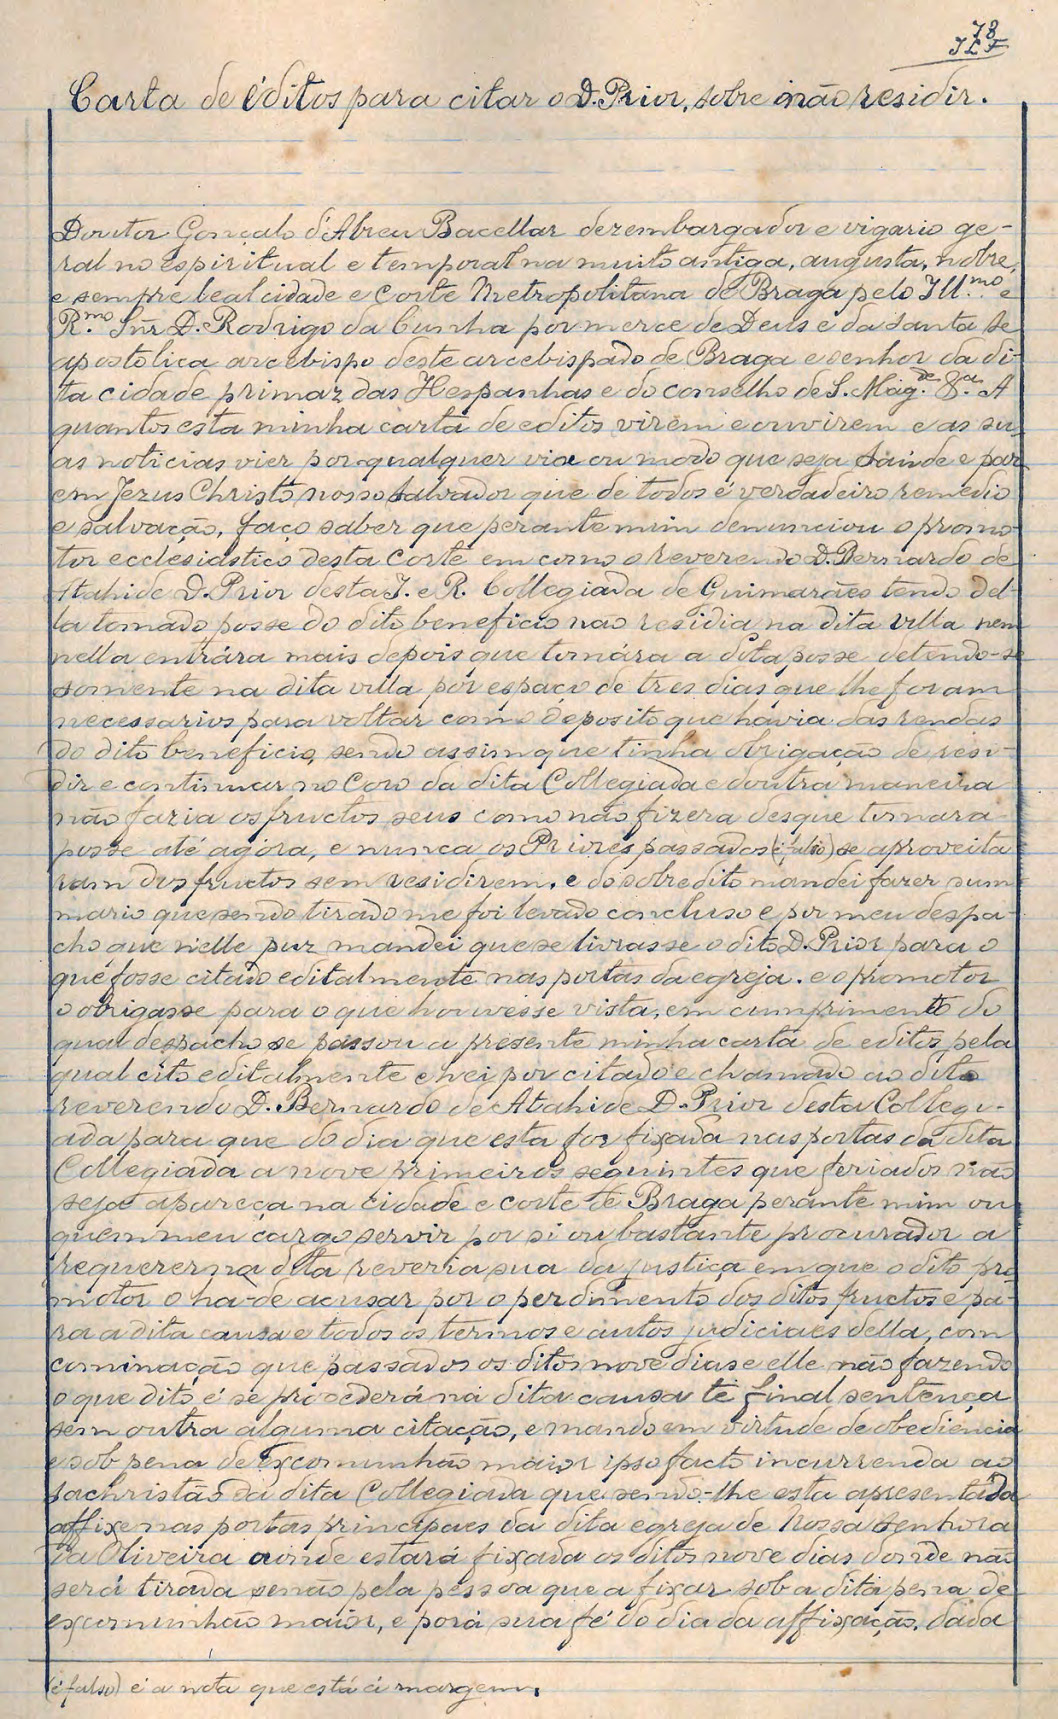 78
Carta de éditos para citar o D. Prior, sobre não residir.
Doutor Gonçalo d'Abreu Bacellar dezembargador e vigario ge-
ral no espiritual e temporal na muito antiga, augusta, nobre,
e sempre leal cidade e Corte Metropolitana de Braga pelo Ill.mo e
R.mo Snr. D. Rodrigo da Cunha por merce de Deus e da santa se
apostolica arcebispo deste arcebispado de Braga e senhor da di-
ta cidade primaz das Hespanhas e do conselho de S. Mag.de &.a A
quantos esta minha carta de editos virem e ouvirem e as su-
as noticias vier por qualquer via ou modo que seja saúde e paz
em Jezus Christo nosso salvador que de todos é verdadeiro remedio
e salvação, faço saber que perante mim denunciou o promo-
tor ecclesiastico desta Corte em como o reverendo D. Bernardo de
Atahide D. Prior desta I. e R. Collegiada de Guimarães tendo del-
la tomado posse do dito beneficio nao residia na dita villa nem
nella entrára mais depois que tomára a dita posse detendo-se
somente na dita villa por espaço de tres dias que lhe foram
necessarios para voltar com o deposito que havia das rendas
do dito beneficio, sendo assim que tinha obrigação de resi-
dir e continuar no Coro da dita Collegiada e doutra maneira
não fazia os fructos seus como não fizera desque tomara
posse até agora, e nunca os Priores passados (é falso) se aproveita
ram dos fructos sem residirem. e do sobredito mandei fazer sum-
mario que sendo tirado me foi levado concluso e por meu despa-
cho que nelle puz mandei que se livrasse o dito D. Prior para o
que fosse citado editalmente nas portas da egreja. e o promotor
o obrigasse para o que houvesse vista, em cumprimento do
qual despacho se passou a presente minha carta de editos pela
qual cito editalmente e hei por citado e chamado ao dito
reverendo D. Bernardo de Atahide D. Prior desta Collegi-
ada para que do dia que esta for fixada nas portas da dita
Collegiada a nove primeiros seguintes que feriados não
seja apareça na cidade e corte de Braga perante mim ou
quem meu cargo servir por si ou bastante procurador a
requerer na dita reveria sua da justiça em que o dito pro-
motor o ha-de acusar por o perdimento dos ditos fructos e pa-
ra a dita causa e todos os termos e autos judiciaes della, com
cominação que passados os ditos nove dias e elle não fazendo
o que dito é se procederá na dita causa té final sentença
sem outra alguma citação, e mando em virtude de obediencia
e sob pena de excomunhão maior ipso facto incurrenda ao
sachristão da dita Collegiada que sendo-lhe esta apresentada
affixe nas portas principaes da dita egreja de Nossa Senhora
da Oliveira aonde estará fixada os ditos nove dias donde não
será tirada senão pela pessoa que a fixar sob a dita pena de
excomunhão maior, e porá sua fé do dia da affixação. dada
(é falso) é a nota que está á margem.